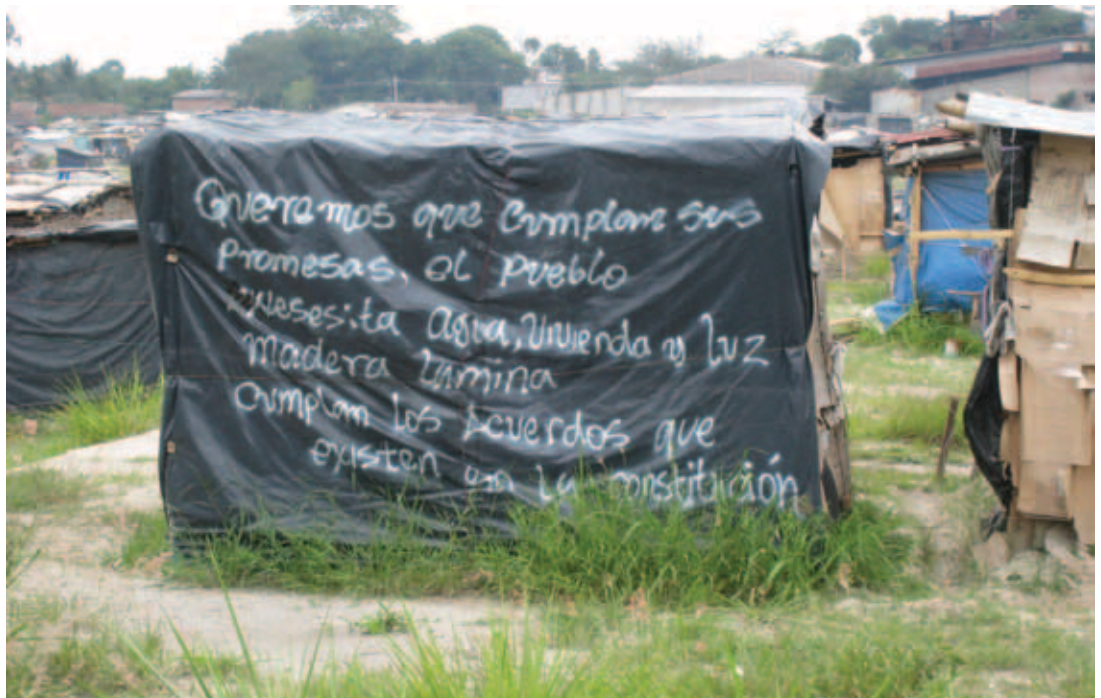 Queremos que cumplan sus
Promesas, el pueblo
nesesita Agua, Vivienda y luz
Madera Lamina
cumplan los Acuerdos que
existen en la constitución